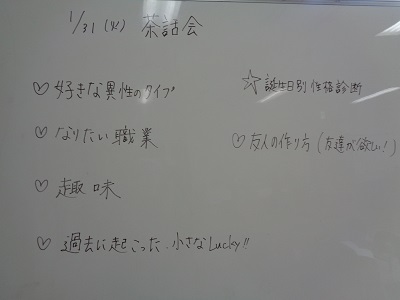 1/31 (火) 茶話会
♡ 好きな異性のタイプ
♡ なりたい職業
♡ 趣味
♡ 過去に起こった、小さなLucky!!
☆ 誕生日別性格診断
♡ 友人の作り方 (友達が欲しい!)